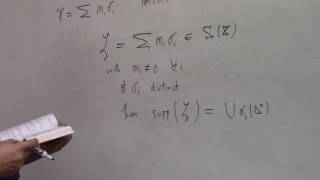 γ = Σ mᵢ σᵢ
ζ = Σ mᵢ σᵢ ∈ Sₙ(Z)
with mᵢ ≠ 0 ∀ i
& σᵢ distinct
Then supp(ζ) = ∪ σᵢ(Δⁿ)